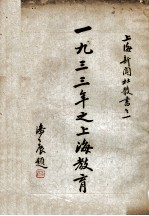 上海新聞社叢書之一
一九三三年之上海教育
潘公展題